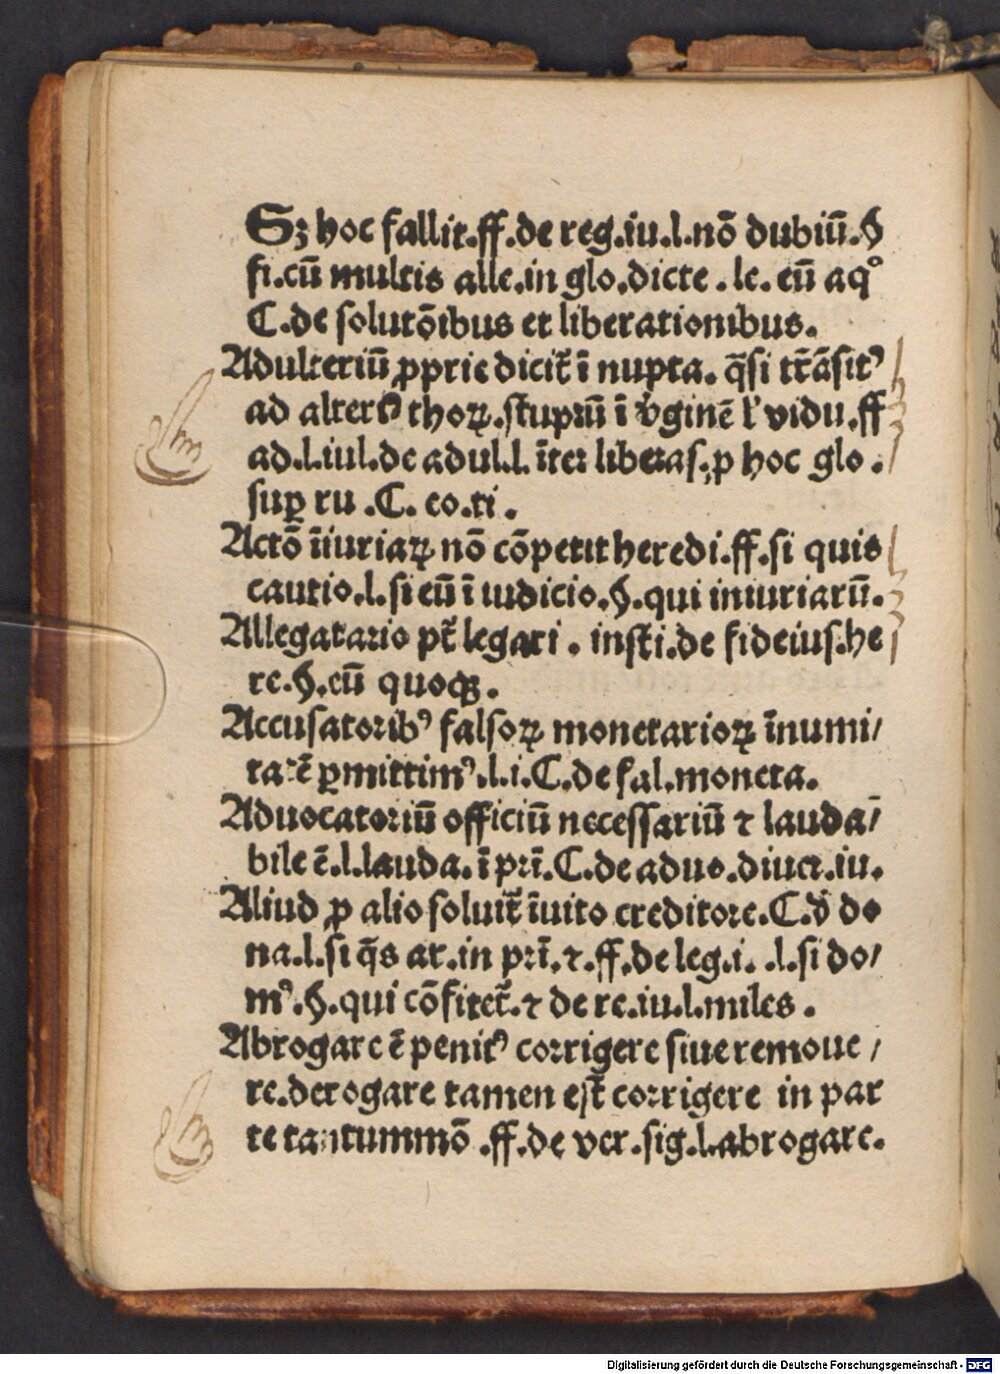 Sꝫ hoc fallit.ff.de reg.iu.l.nō dubiū.§
fi.cū multis alle.in glo.dicte.le.cū aq°
C.de solutōibus et liberationibus.
Adulteriū ꝓprie dicit̃ ī nupta. q̃si tr̄āsitꝰ
ad alterꝰ thoꝝ.stuprū ī v̓ginē l̓ vidu.ff
ad.l.iul.de adul.l.īter liberas.ꝓ hoc glo.
suꝑ ru.C.eo.ti.
Actō īiuriaꝝ nō cōpetit heredi.ff.si quis
cautio.l.si eū ī iudicio.§.qui iniuriarū.
Allegatario pt̄ legari. insti.de fideius.he
re.§.eū quoqꝫ.
Accusatoribꝰ falsoꝝ monetarioꝝ īnumi/
tatē ꝑmittimꝰ.l.i.C.de fal.moneta.
Aduocatoriū officiū necessariū ⁊ lauda/
bile ē.l.lauda.ī pri̅.C.de aduo.diuer.iu.
Aliud ꝓ alio soluit̃ īuito creditore.C.d̓ do
na.l.si q̃s ar.in pri̅.⁊.ff.de leg.i. .l.si do/
mꝰ.§.qui cōfitet̃.⁊ de re.iu.l.miles.
Abrogare ē penitꝰ corrigere siue remoue/
re.derogare tamen est̄ corrigere in par
te tantummō.ff.de ver.sig.l.abrogare.
Digitalisierung gefördert durch die Deutsche Forschungsgemeinschaft - DFG